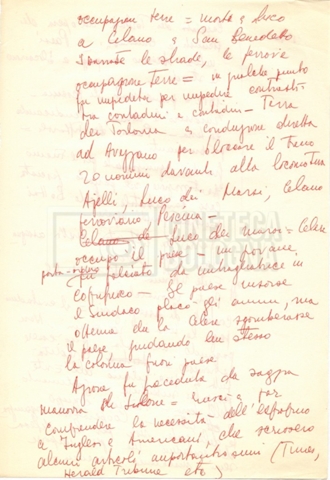 occupazioni terre = morto a Luco
a Celano e San Benedetto
le strade, le ferrovie
occupazione terre = in qualche punto
fu impedita per impedire contrasti
tra contadini e contadini - Terra
dei Torlonia a conduzione diretta
ad Avezzano per bloccare il treno
20 uomini davanti alla locomotiva
Ajelli, Luco dei Marsi, Celano
ferroviario Pescina -
Luco dei Marsi = Celere
occupò il paese - un giovane
fu falciato da mitragliatrice in
- Il paese insorse
il Sindaco placò gli animi, ma
ottenne che la Celere sgomberasse
il paese guidando lui stesso
la colonna fuori paese
Azione fu preceduta da saggia
manovra di = riuscì a far
comprendere la necessità dell'esproprio
a Inglesi e Americani, che scrissero
alcuni articoli importantissimi (Times,
Herald Tribune etc)